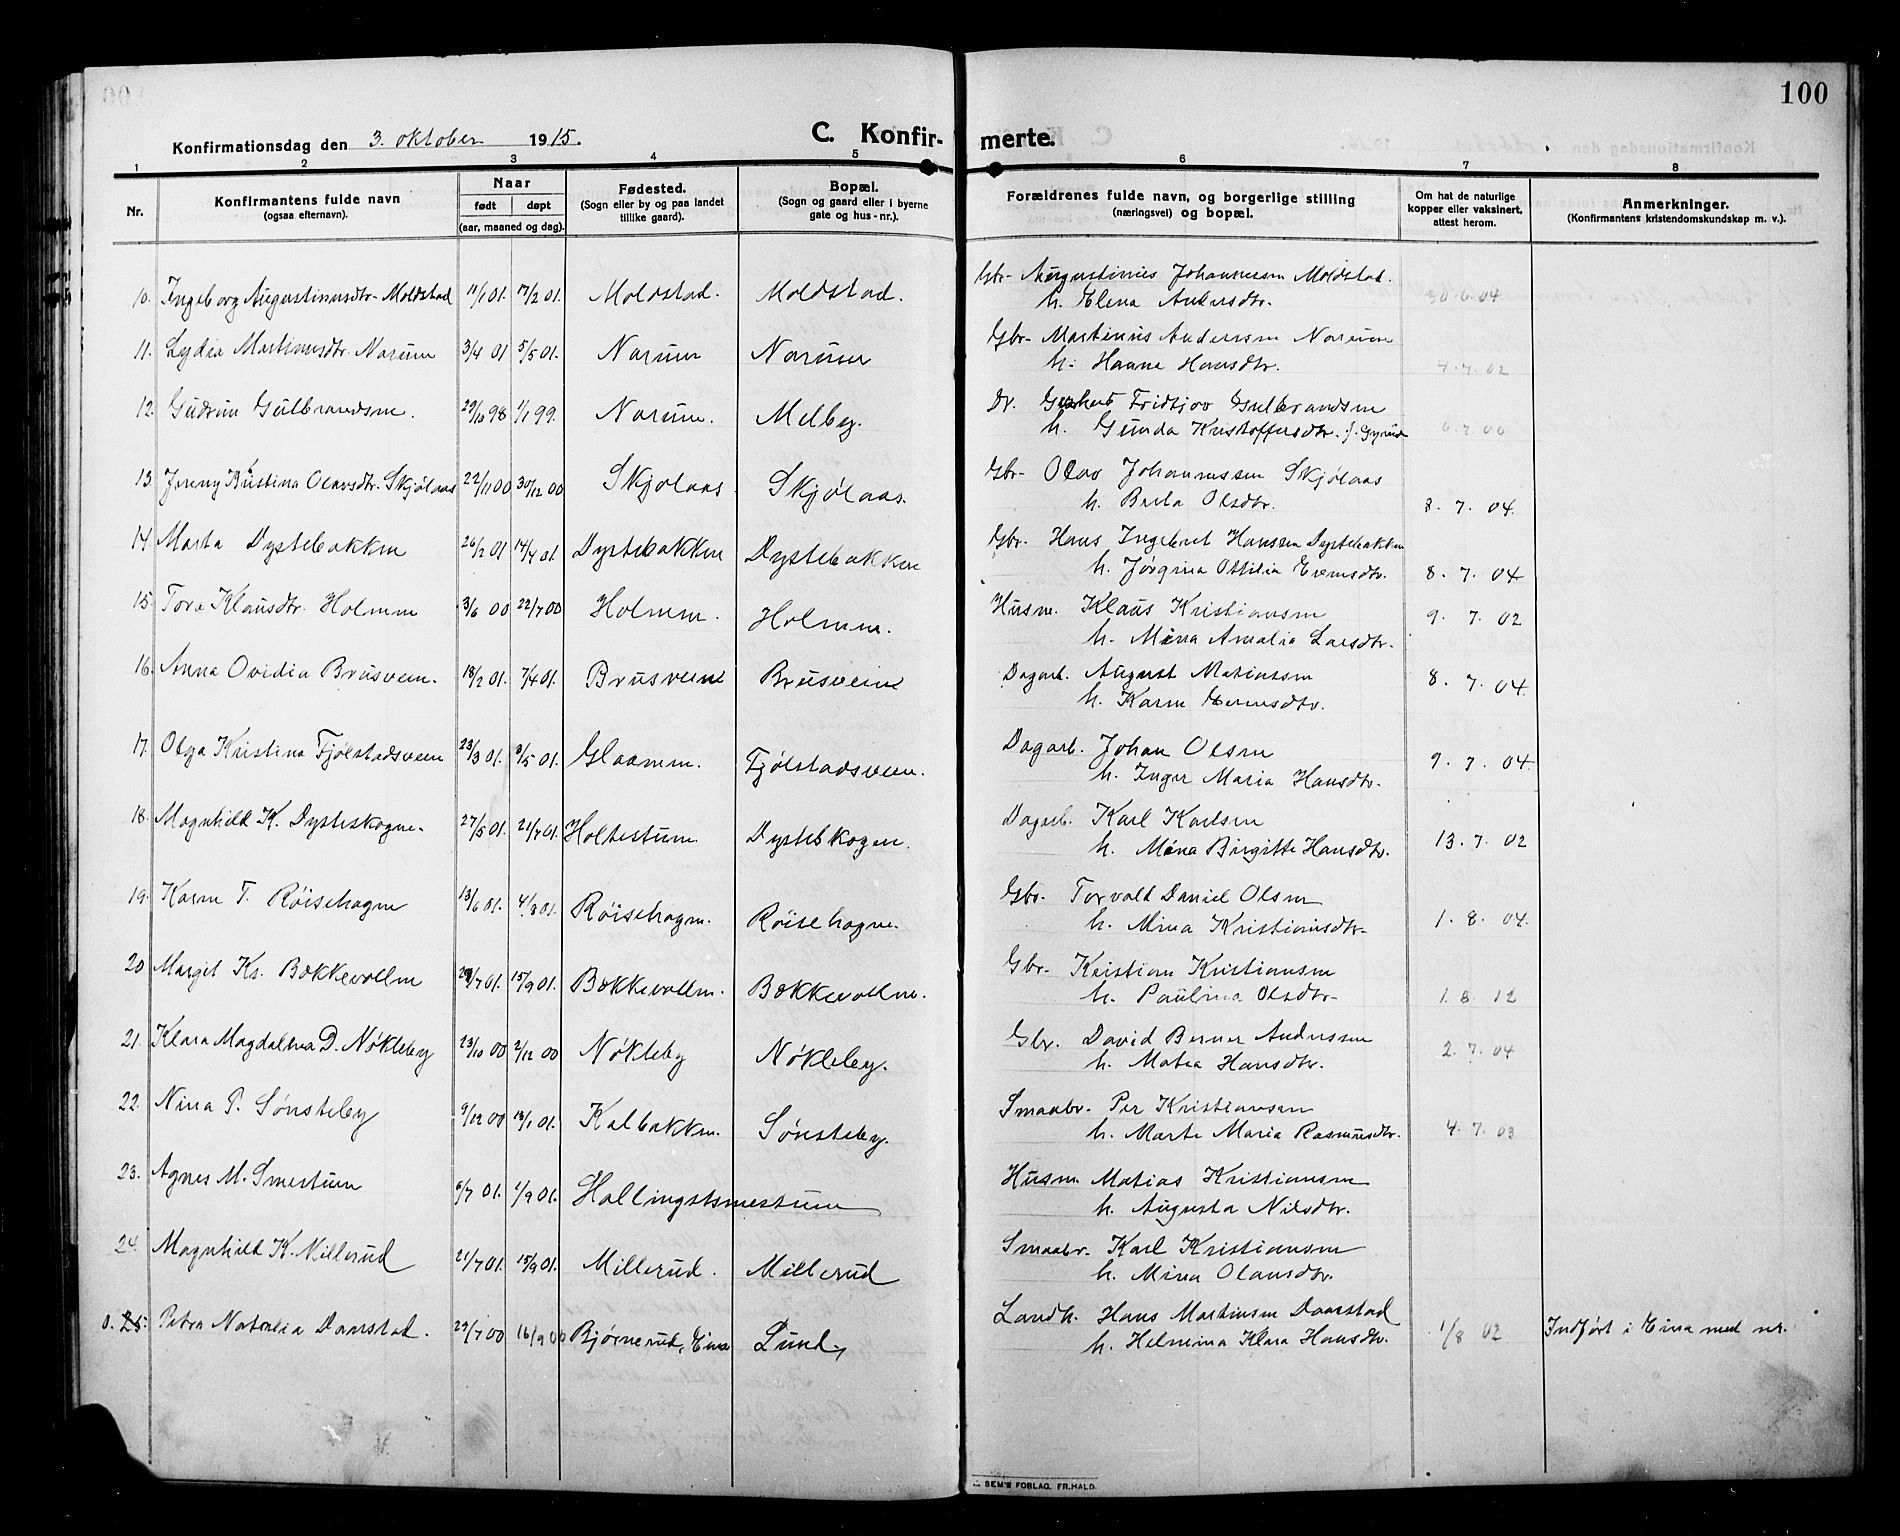 100
Konfirmationsdag den 3. oktober 1915. C. Konfirmerte.
1 2 3 4 5 6 7 8
Nr. Konfirmantens fulde navn (ogsaa efternavn). Naar født døpt (aar, maaned og dag). Fødested. (Sogn eller by og paa landet tillike gaard). Bopæl. (Sogn og gaard eller i byerne gate og hus-nr.). Forældrenes fulde navn, og borgerlige stilling (næringsvei) og bopæl. Om hat de naturlige kopper eller vaksinert, attest herom. Anmerkninger. (Konfirmantens kristendomskundskap m. v.).
10. Ingeborg Augustinusdtr. Moldstad 11/1 01. 17/2 01. Moldstad. Moldstad. Gbr. Augustinus Johannessen Moldstad. 30.6.04
h. Elena Andersdtr.
11. Lydia Martinusdtr. Narum 3/4 01 5/5 01. Narum Narum Gbr. Martinus Andersen Narum
h. Hanne Hansdtr. 4.7.02
12. Gudrun Gulbrandsen. 29/10 98 1/1 99. Narum. Melby. Dr. Fridtjov Gulbrandsen
h. Gunda Kristoffersdtr. f. Gyrud
13. Jenny Kristina Olavsdtr. Skjølaas 22/11 00 30/12 00 Skjølaas Skjølaas. Gbr. Olav Johannessen Skjølaas
h. Berta Olsdtr. 8.7.04.
14. Marta Dystebakken 26/2 01 14/4 01. Dystebakken Dystebakken Gbr. Hans Ingebret Hanssen Dystebakken
h. Jørgina Ottilia Evensdtr. 8.7.04
15. Tora Klausdtr. Holmen 3/6 00 22/7 00 Holmen. Holmen. Husm. Klaus Kristiansen 9.7.02
h. Mina Amalia Larsdtr.
16. Anna Ovidia Brusveen. 18/2 01. 7/4 01. Brusveen Brusveen Dagarb. August Matiassen 8.7.04.
h. Karen Evensdtr.
17. Olga Kristina Fjølstadsveen 23/3 01. 8/5 01. Glaamen. Fjølstadsveen. Dagarb. Johan Olsen 9.7.04.
h. Inger Maria Hansdtr.
18. Magnhild K. Dysteskogen. 27/5 01. 21/7 01. Holtestuen Dysteskogen. Dagarb. Karl Karlsen
h. Mina Birgitte Hansdtr. 13.7.02
19. Karen T. Røisehagen 13/6 01. 4/8 01. Røisehagen. Røisehagen. Gbr. Torvald Daniel Olsen
h. Mina Kristiansdtr. 1.8.04.
20 Margit Kr. Bækkevollen /7 01. 15/9 01. Bækkevollen. Bækkevollen. Gbr. Kristian Kristiansen
h. Paulina Olsdtr. 1.8.12
21. Klara Magdalena D. Nøkleby 23/10 00 2/12 00 Nøkleby Nøkleby. Gbr. David Berner Anderssen
h. Matea Hansdtr. 2.7.04
22. Nina P. Sønsteby 9/12 00 13/1 01. Kalbakken. Sønsteby. Smaabr. Per Kristiansen
h. Marte Maria Rasmusdtr. 4.7.03
23. Agnes M. Smestuen 6/7 01. 1/9 01. Hallingstsmestuen Husm. Matias Kristiansen
h. Augusta Nilsdtr.
24. Magnhild K. Millerud 21/7 01. 15/9 01. Millerud. Millerud Smaabr. Karl Kristiansen
h. Mina Olausdtr.
0. 25. Petra Natalia Daarstad. 29/7 00 16/9 00 Bjørnerud, Eina Lund, Landh. Hans Martinsen Daarstad
h. Helmina Klara Hansdtr. 1/8 02 Indført i Eina med nr.
SEM'S FORLAG, FR.HALD.